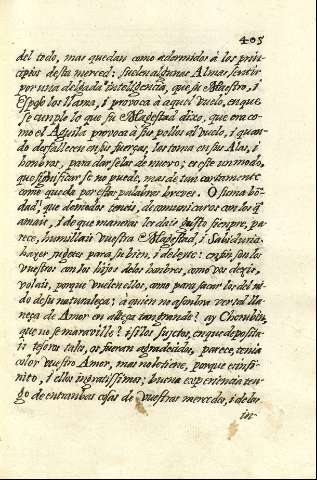 405
del todo, mas quedan como adormidos à los prin-
cipios desta merced: suelen algunas Almas sentir
por una delgada inteligencia, que su Maestro, i
Esposo los llama, i provoca à aquel vuelo, en que
se cumple lo que su Magestad dixo, que era co-
mo el Aguila provoca à sus pollos al vuelo, i quan-
do desfallecen en sus fuerças, los toma en sus Alas, i
hombros, para darselas de nuevo; es este un modo,
que significar se no puede, mas de tan cortamente
como queda por estas palabras breves. O suma bo-
dad, que de modos teneis, de comunicaros con los q̃
amais, i de que maneras les dais gusto siempre, pa-
rece, humillais vuestra Magestad, i Sabiduria
hazer juegos para su bien, i deleite: en fin, son los
vuestros con los hijos de los hombres, como vos dezis,
volais, porque vuelen ellos, como para sacar los del ni-
do de su naturaleza: à quièn no asombra ver tal lla-
neza de Amor en alteza tan grande? ay Cherubin,
que no se maraville? i si los Sujetos, en que deposita-
is tesoros tales, os fueran agradecidos, parece, tenia
color vuestro Amor, mas no le tiene, porque es infi-
nito, i ellos ingratissimos; buena experiencia ten-
go de entrambas cosas de vuestras mercedes, i de los
in-